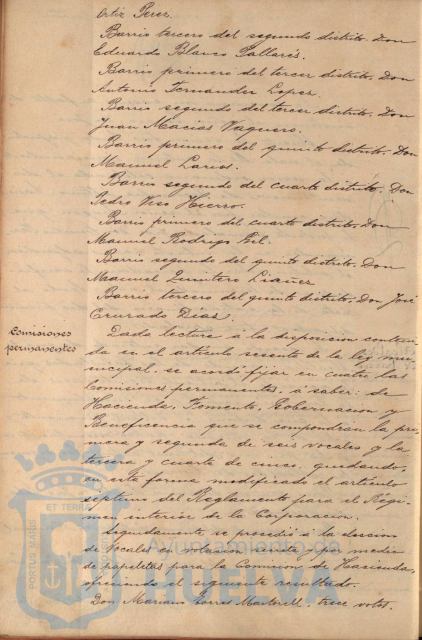 Ortiz Perez.
Barrio tercero del segundo distrito. Don
Eduardo Blanco Pallarés.
Barrio primero del tercer distrito. Don
Antonio Fernandez Lopez.
Barrio segundo del tercer distrito. Don
Juan Macias Vaquero.
Barrio primero del quinto distrito. Don
Manuel Larios.
Barrio segundo del cuarto distrito. Don
Pedro Viso Hierro.
Barrio primero del cuarto distrito. Don
Manuel Rodrigo Gil.
Barrio segundo del quinto distrito. Don
Manuel Quintero Liañez
Barrio tercero del quinto distrito. Don José
Cruzado Dias.
Comisiones
permanentes
Dada lectura á la disposicion conteni-
da en el articulo sesenta de la ley mu-
nicipal, se acordó fijar en cuatro las
Comisiones permanentes, á saber: de
Hacienda, Fomento, Gobernacion y
Beneficencia que se compondran la pri-
mera y segunda de seis vocales y la
tercera y cuarta de cinco, quedando,
en esta forma modificado el articulo
séptimo del Reglamento para el Régi-
men interior de la Corporacion.
Seguidamente se procedió á la eleccion
de vocales en votacion secreta y por medio
de papeletas para la Comision de Hacienda,
ofreciendo el siguiente resultado.
Don Mariano Torres Martorell, trece votos.
ET TERRÆ
PORTUS MARIS
CUSTODIA
Ayuntamiento de
HUELVA